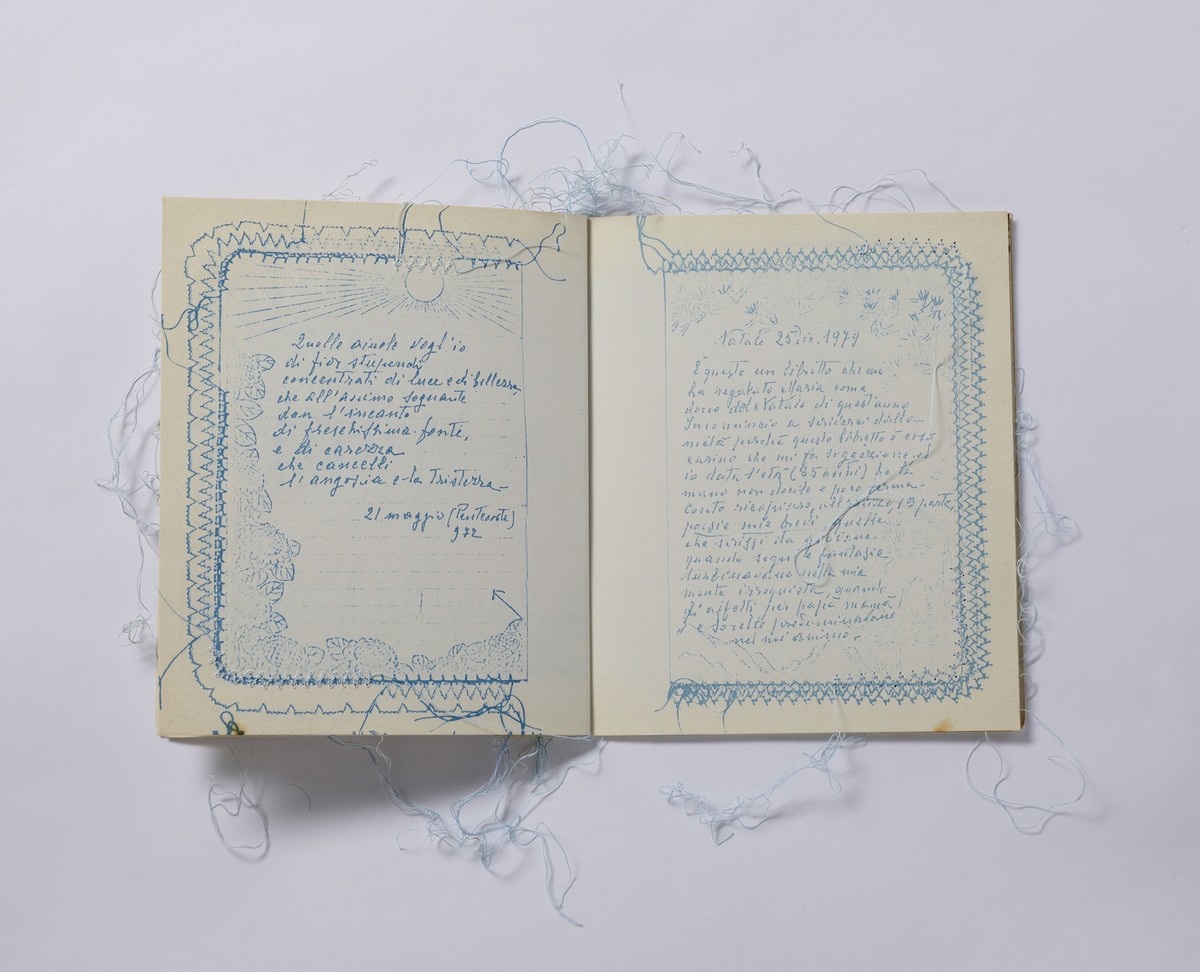 Quelle aiuole vogl'io
di fior stupendi
concentrati di luce e di bellezza,
che all'animo sognante
dan l'incanto
di freschissima fonte,
e di carezza
che cancelli
l'angoscia e la tristezza
21 maggio (Pentecoste)
972
Natale 25 dic. 1979
È questo un libretto che mi
ha regalato Maria come
dono del Natale di quest'anno
Incomincio a scriverci dalla
metà perchè questo libretto è così
carino che mi fa soggezione e
io data l'età (85 anni) ho la
mano non docile e poco ferma.
Conto ricopiare,
poesie mie quelle
che scrissi da giovane
quando sogni e fantasie
turbinavano nella mia
mente irrequieta, quando
gl'affetti per papà mamma
e sorelle predominavano
nel mio animo.